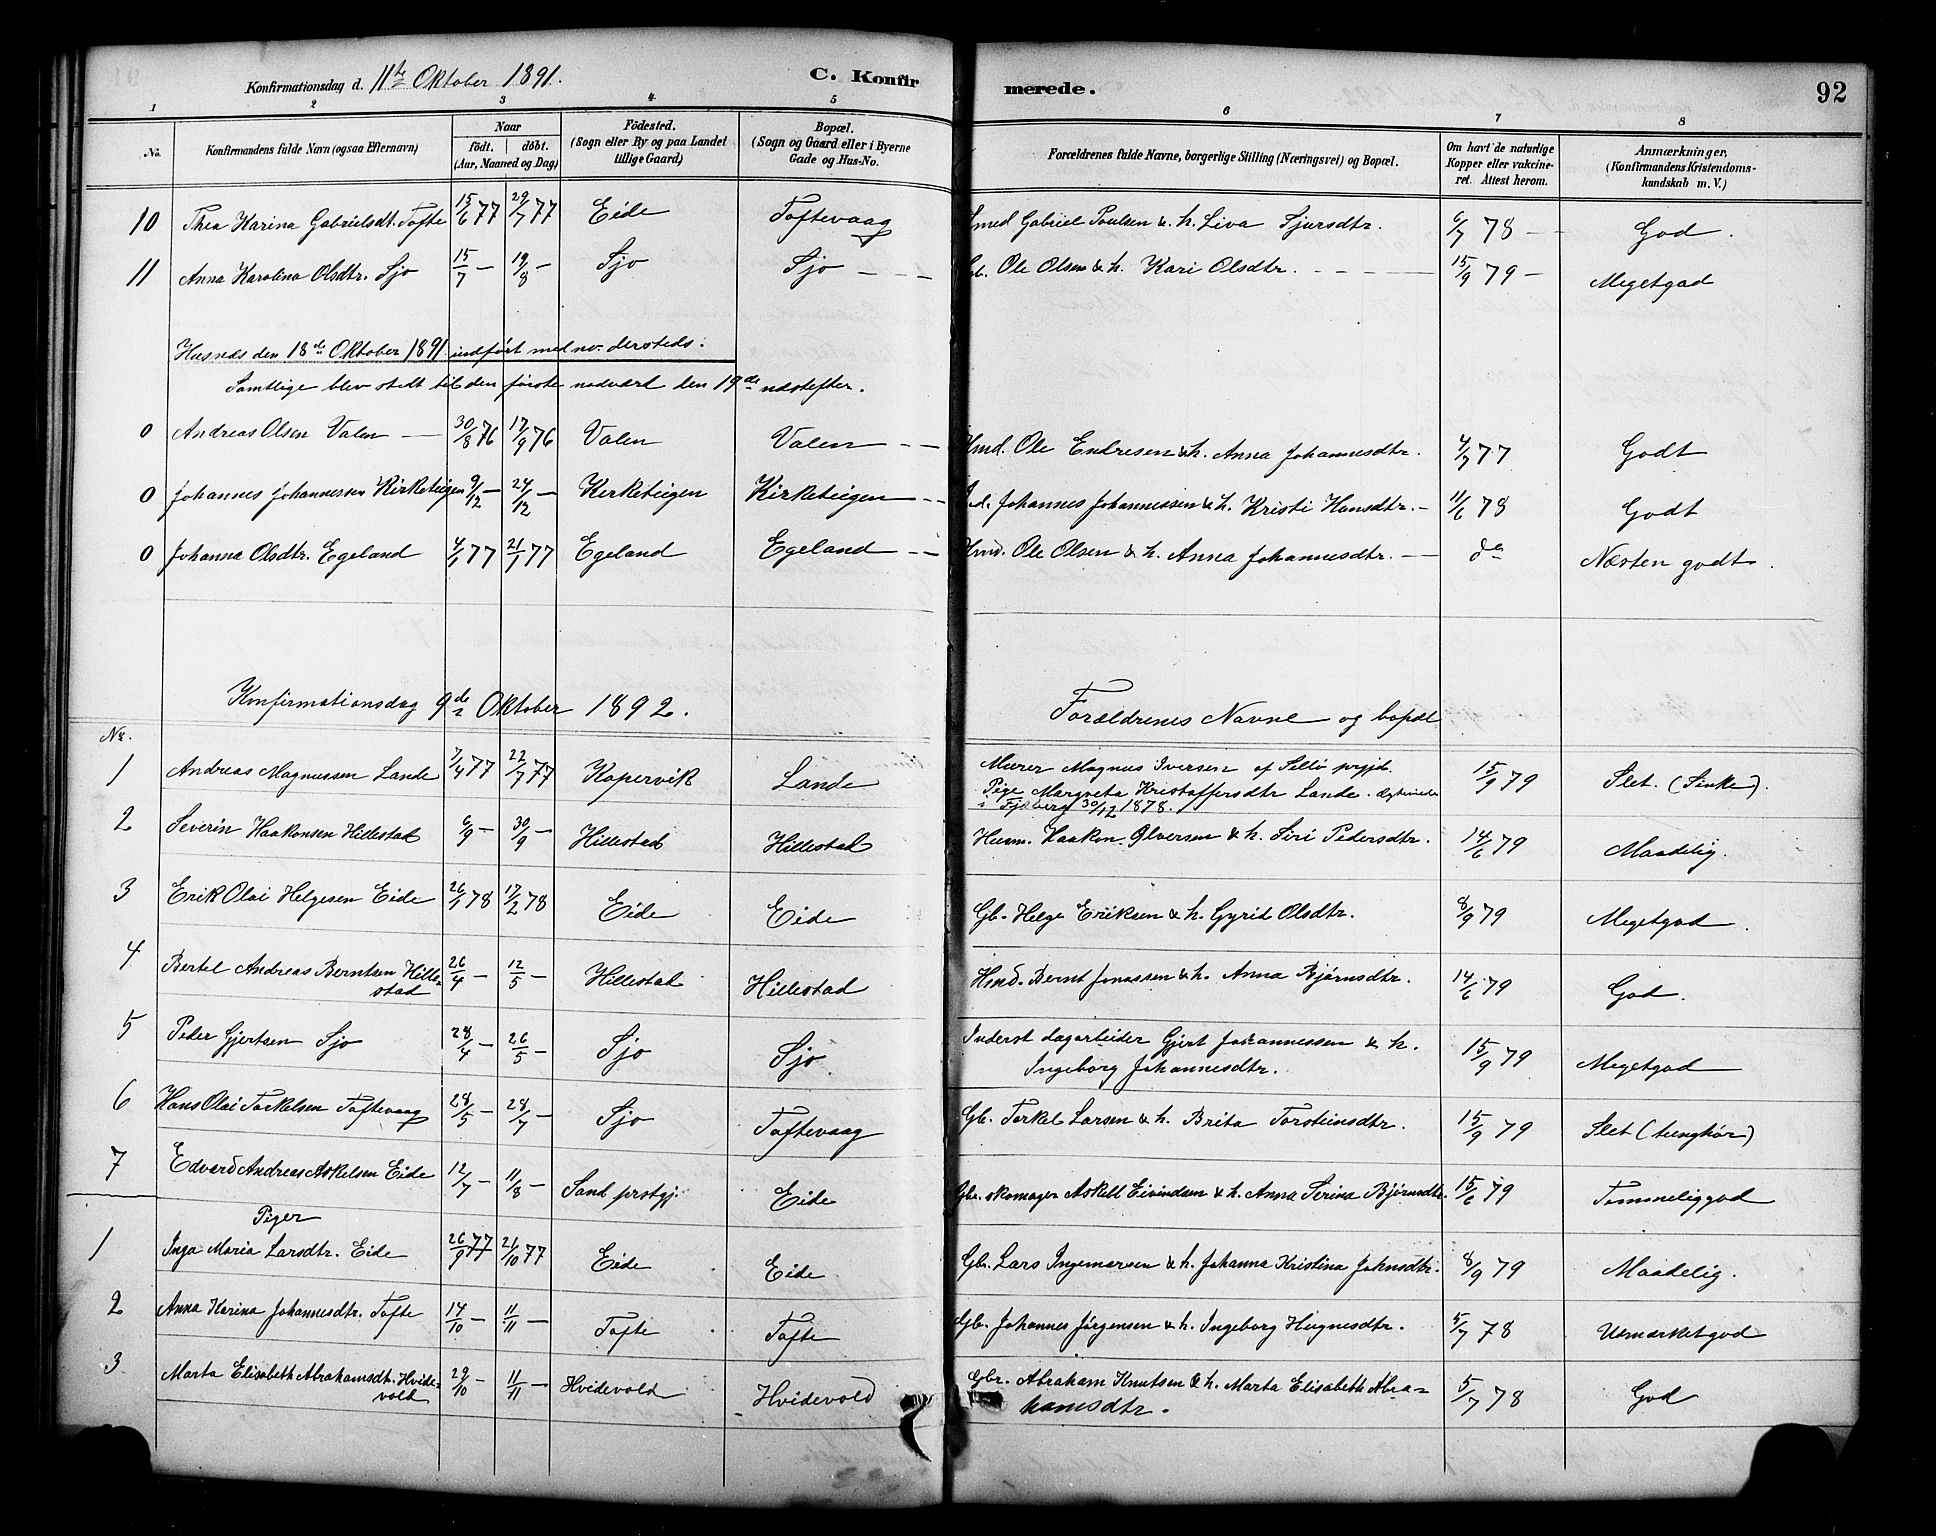 Konfirmationsdag d. 11te Oktober 1891. C. Konfirmerede. 92
1 2 3 4 5 6 7 8
No. Konfirmandens fulde Navn (ogsaa Efternavn) Naar födt. döbt. (Aar, Maaned og Dag) Födested. (Sogn eller By og paa Landet tillige Gaard) Bopæl. (Sogn og Gaard eller i Byerne Gade og Hus-No. Forældrenes fulde Navne, borgerlige Stilling (Næringsvei) og Bopæl. Om havt de naturlige Kopper eller vakcineret. Attest herom. Anmærkninger, (Konfirmandens Kristendomskundskab m. V.)
10 Thea Karina Gabrielsdt. Tofte 15/6 77 29/7 77 Eide Toftevaag Smed Gabriel Poulsen & h. Liva Sjursdtr. 6/7 78 — God.
11 Anna Karolina Olsdtr. Sjo 15/7 — 19/8 — Sjo Sjo — — — Gb. Ole Olsen & h. Kari Olsdtr. — — — — 15/9 79 — Megetgod
Husnæs den 18de Oktober 1891 indført med no. dersteds:
Samtlige blev stedt til den første nadværd den 19de næstefter.
0 Andreas Olsen Valen — 30/8 76 17/9 76 Valen Valen — — Hmd. Ole Endresen & h. Anna Johannesdtr. 4/7 77 Godt
0 Johannes Johannessen Kirketeigen 9/12 — 24/12 — Kirketeigen Kirketeigen — — Johannes Johannessen & h. Kristi Hansdtr. — 11/6 78 Godt
0 Johanna Olsdtr. Egeland 4/1 77 21/1 77 Egeland Egeland — — Hmd. Ole Olsen & h. Anna Johannesdtr. — do Næsten godt.
Konfirmationsdag 9de Oktober 1892. Forældrenes Navne og bopæl
Nr.
1 Andreas Magnussen Lande 7/4 77 22/7 77 Kopervik Lande Murer Magnus Iversen af prgjd. 15/9 79 Slet. (Sinke).
Pige Margreta Kristoffersdtr Lande.
i Fjelberg 30/12 1878.
2 Severin Haakonsen Hillestad 6/9 — 30/9 — Hillestad Hillestad Husm. Haakon Olversen & h. Siri Pedersdtr. 14/6 79 Maadelig.
3 Erik Olai Helgesen Eide 26/1 78 17/2 78 Eide Eide Gb. Helge Eriksen & h. Gyrid Olsdtr. 8/9 79 Megetgod
4 Bertel Andreas Berntsen Hillestad 26/4 — 12/5 — Hillestad Hillestad Hmd. Bernt Jonassen & h. Anna Bjørnsdtr. 14/6 79 God.
5 Peder Gjertsen Sjo 28/4 — 26/5 — Sjo Sjo Inderst dagarbeider Gjert Johannessen & h. 15/9 79 Megetgod
Ingeborg Johannesdtr.
6 Hans Olai Torkelsen Toftevaag 28/5 — 28/7 — Sjo Toftevaag Gb. Torkel Larsen & h. Brita Torsteinsdtr. 15/9 79 Slet (tunghør)
7 Edvard Andreas Askelsen Eide 12/7 — 11/8 — Sand prstgj. Eide Gbr. skomager Askell Eivindsen & h. Anna Serina Bjørnsdtr. 15/6 79 Temmeliggod
Piger
1 Inga Maria Larsdtr. Eide 26/9 77 21/10 77 Eide Eide Gbr. Lars Ingemarsen & h. Johanna Kristina Johnsdtr. 8/9 79 Maadelig.
2 Anna Karina Johannesdtr. Tofte 14/10 — 11/11 — Tofte Tofte Gb. Johannes Jørgensen & h. Ingeborg Hognesdtr. 5/7 78 Udmærketgod
3 Marta Elisabeth Abrahamsdt. Hvidevold 29/10 — 11/11 — Hvidevold Hvidevold Gbr. Abraham Knutsen & h. Marta Elisabeth Abra- 5/7 78 God
hamsdtr.